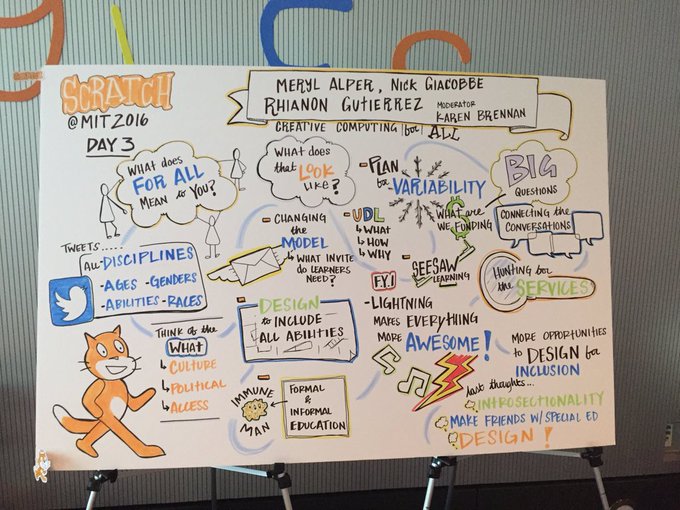 SCRATCH
@MIT2016
DAY 3
MERYL ALPER, NICK GIACOBBE
RHIANON GUTIERREZ
MODERATOR
KAREN BRENNAN
CREATIVE COMPUTING for ALL
WHAT DOES
FOR ALL
MEAN to YOU?
TWEETS.....
ALL DISCIPLINES
-AGES -GENDERS
-ABILITIES -RACES
THINK OF the
WHAT
CULTURE
POLITICAL
ACCESS
WHAT DOES
that LOOK
LIKE?
- CHANGING
the
MODEL
WHAT INVITE
do LEARNERS
NEED?
- DESIGN
to INCLUDE
ALL ABILITIES
IMMUNE
MAN
FORMAL
&
INFORMAL
EDUCATION
-PLAN
for
VARIABILITY
-UDL
WHAT
HOW
WHY
WHAT ARE
WE FUNDING
$
F.Y.I
SEESAW
LEARNING
-LIGHTNING
MAKES EVERYTHING
MORE AWESOME!
BIG
QUESTIONS
CONNECTING the
CONVERSATIONS
HUNTING for
the SERVICES
MORE OPPORTUNITIES
to DESIGN for
INCLUSION
last thoughts...
INTROSECTIONALITY
MAKE FRIENDS W/ SPECIAL ED
DESIGN!